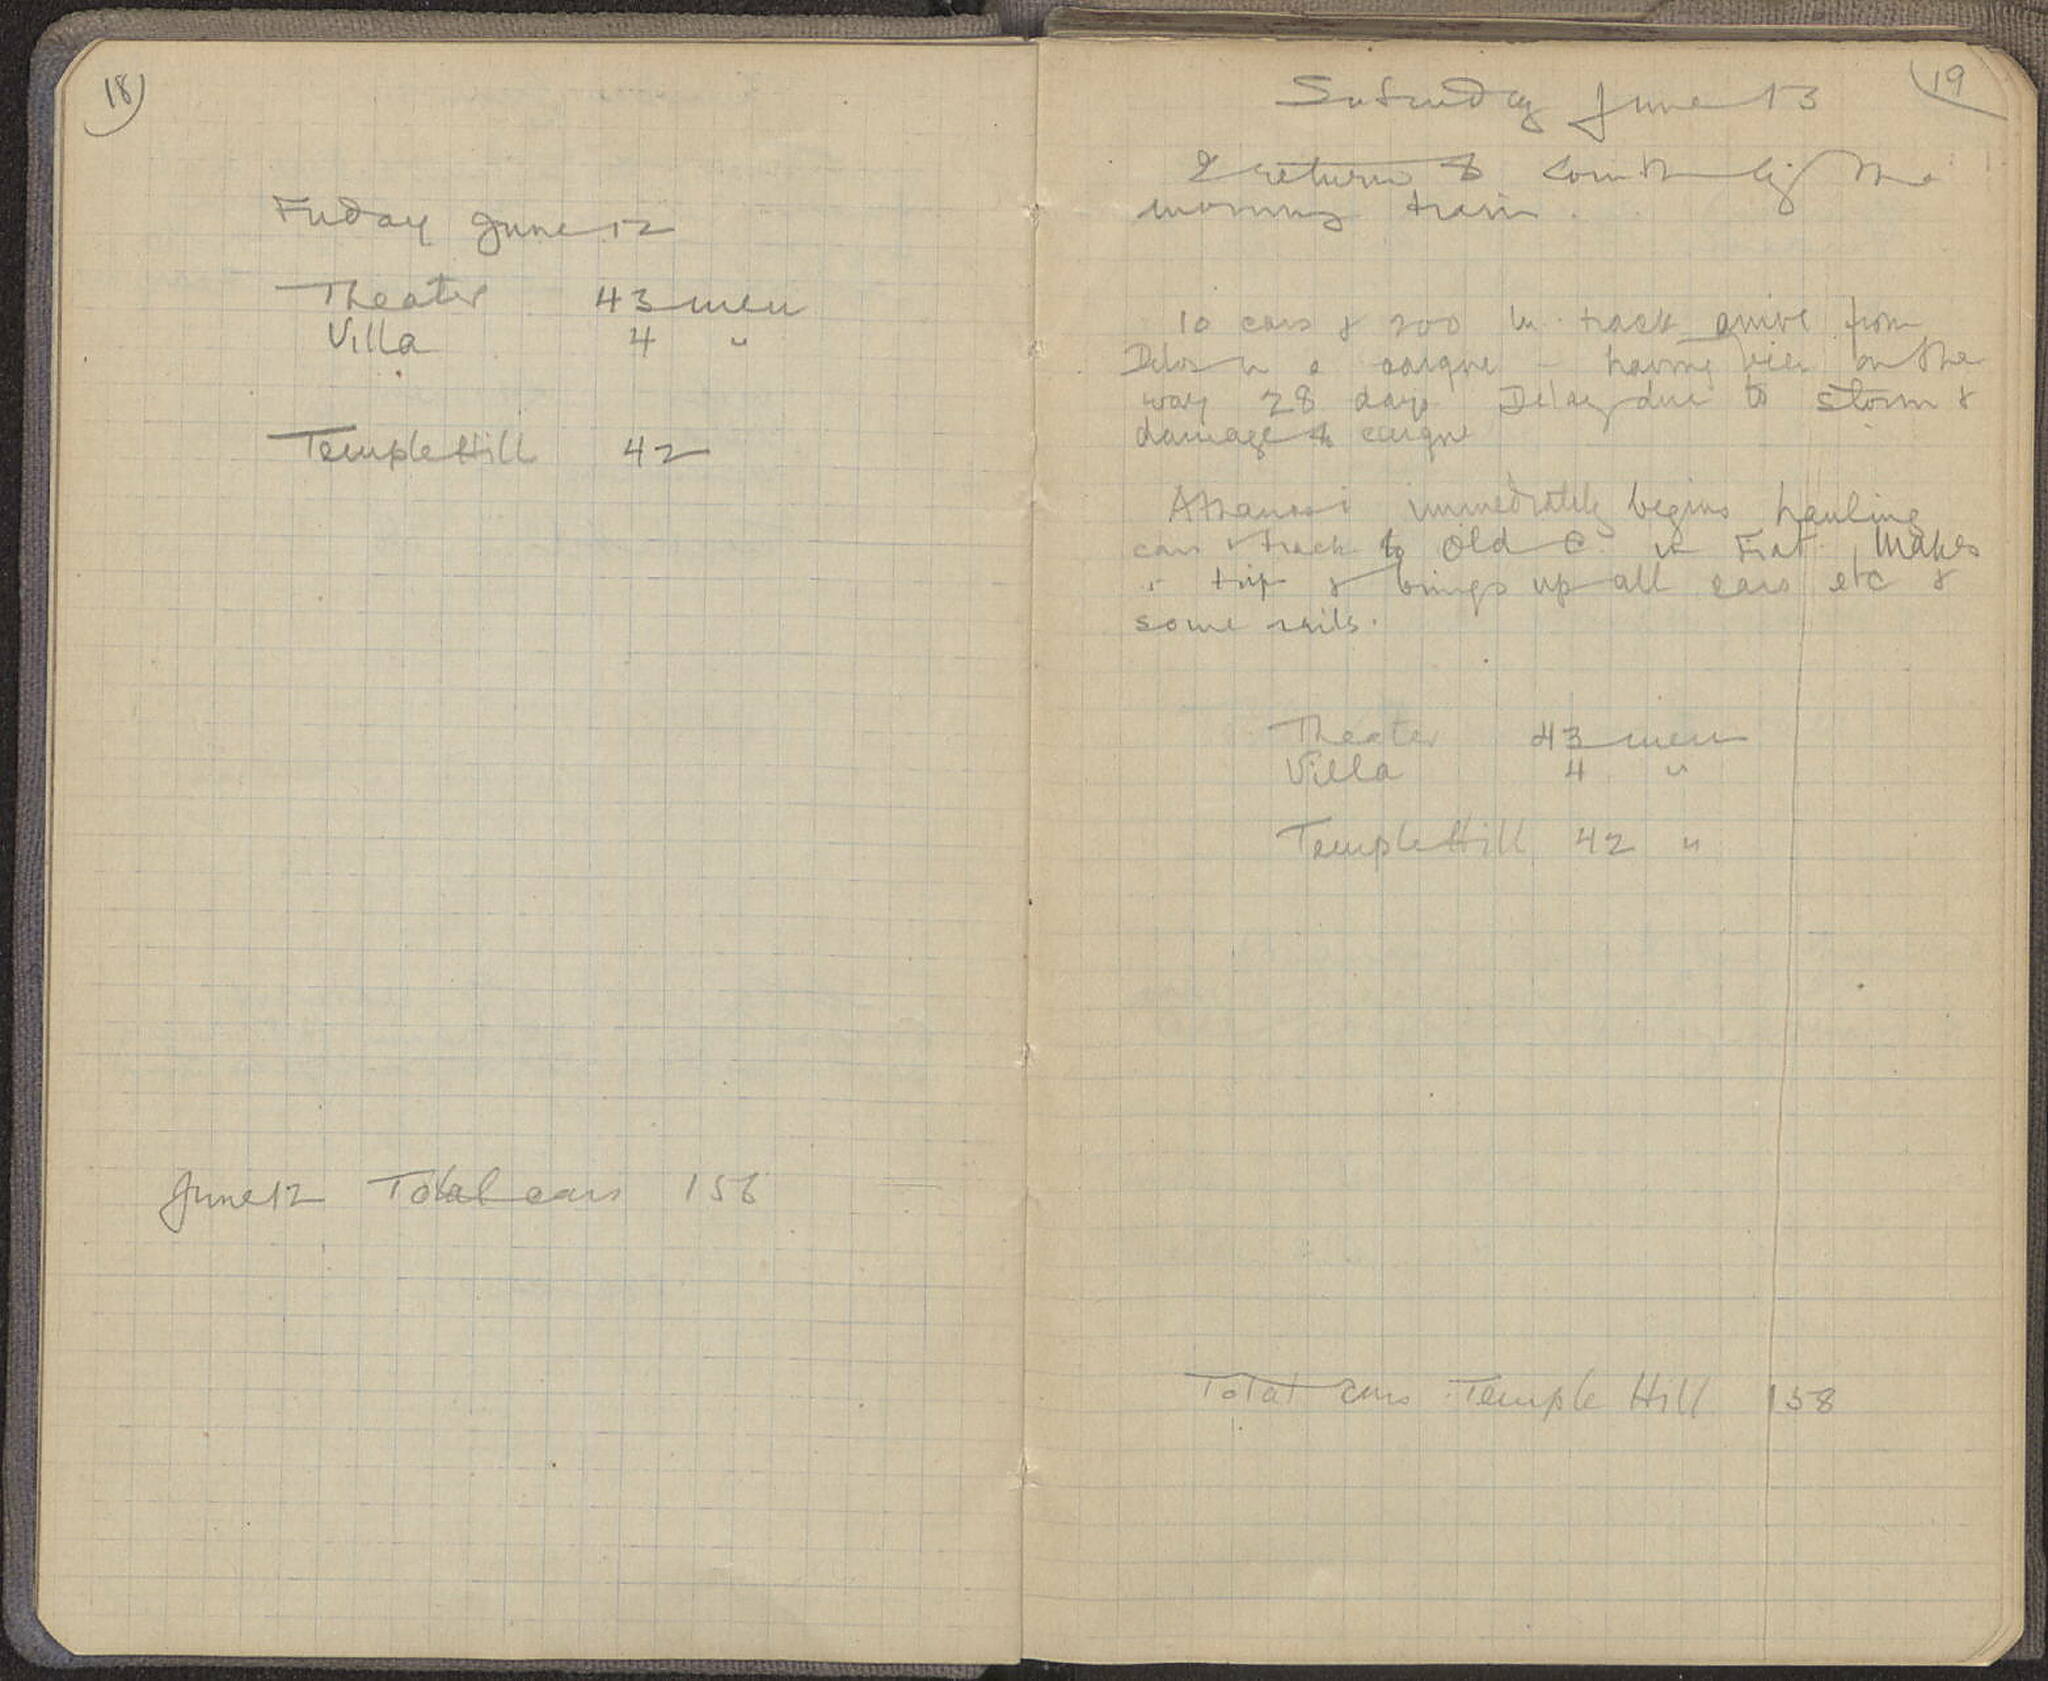 18
Friday June 12
Theater 43 men
Villa 4 "
Temple Hill 42
June 12 Total cars 156
19
Saturday June 13
I return to Corinth by the
morning train.
10 cars & 200 m track arrive from
Delos in a caique - having been on the
way 28 days. Delay due to storm &
damage to caique
Athanasi immediately begins hauling
cars & track to Old C. in Fiat. Makes
trip & brings up all cars etc &
some rails.
Theater 43 men
Villa 4 "
Temple Hill 42 "
Total cars Temple Hill 158